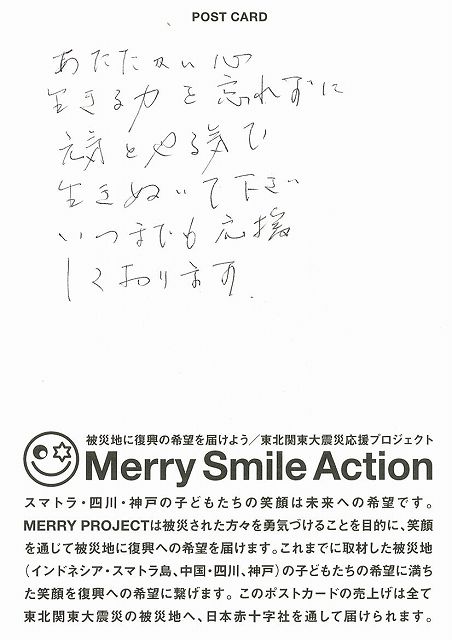 POST CARD
あたたかい心
生きる力を忘れずに
元気とやる気で
生きぬいて下さい
いつまでも応援
しております.
被災地に復興の希望を届けよう／東北関東大震災応援プロジェクト
Merry Smile Action
スマトラ・四川・神戸の子どもたちの笑顔は未来への希望です。
MERRY PROJECTは被災された方々を勇気づけることを目的に、笑顔
を通じて被災地に復興への希望を届けます。これまでに取材した被災地
（インドネシア・スマトラ島、中国・四川、神戸）の子どもたちの希望に満ち
た笑顔を復興への希望に繋げます。このポストカードの売上げは全て
東北関東大震災の被災地へ、日本赤十字社を通して届けられます。